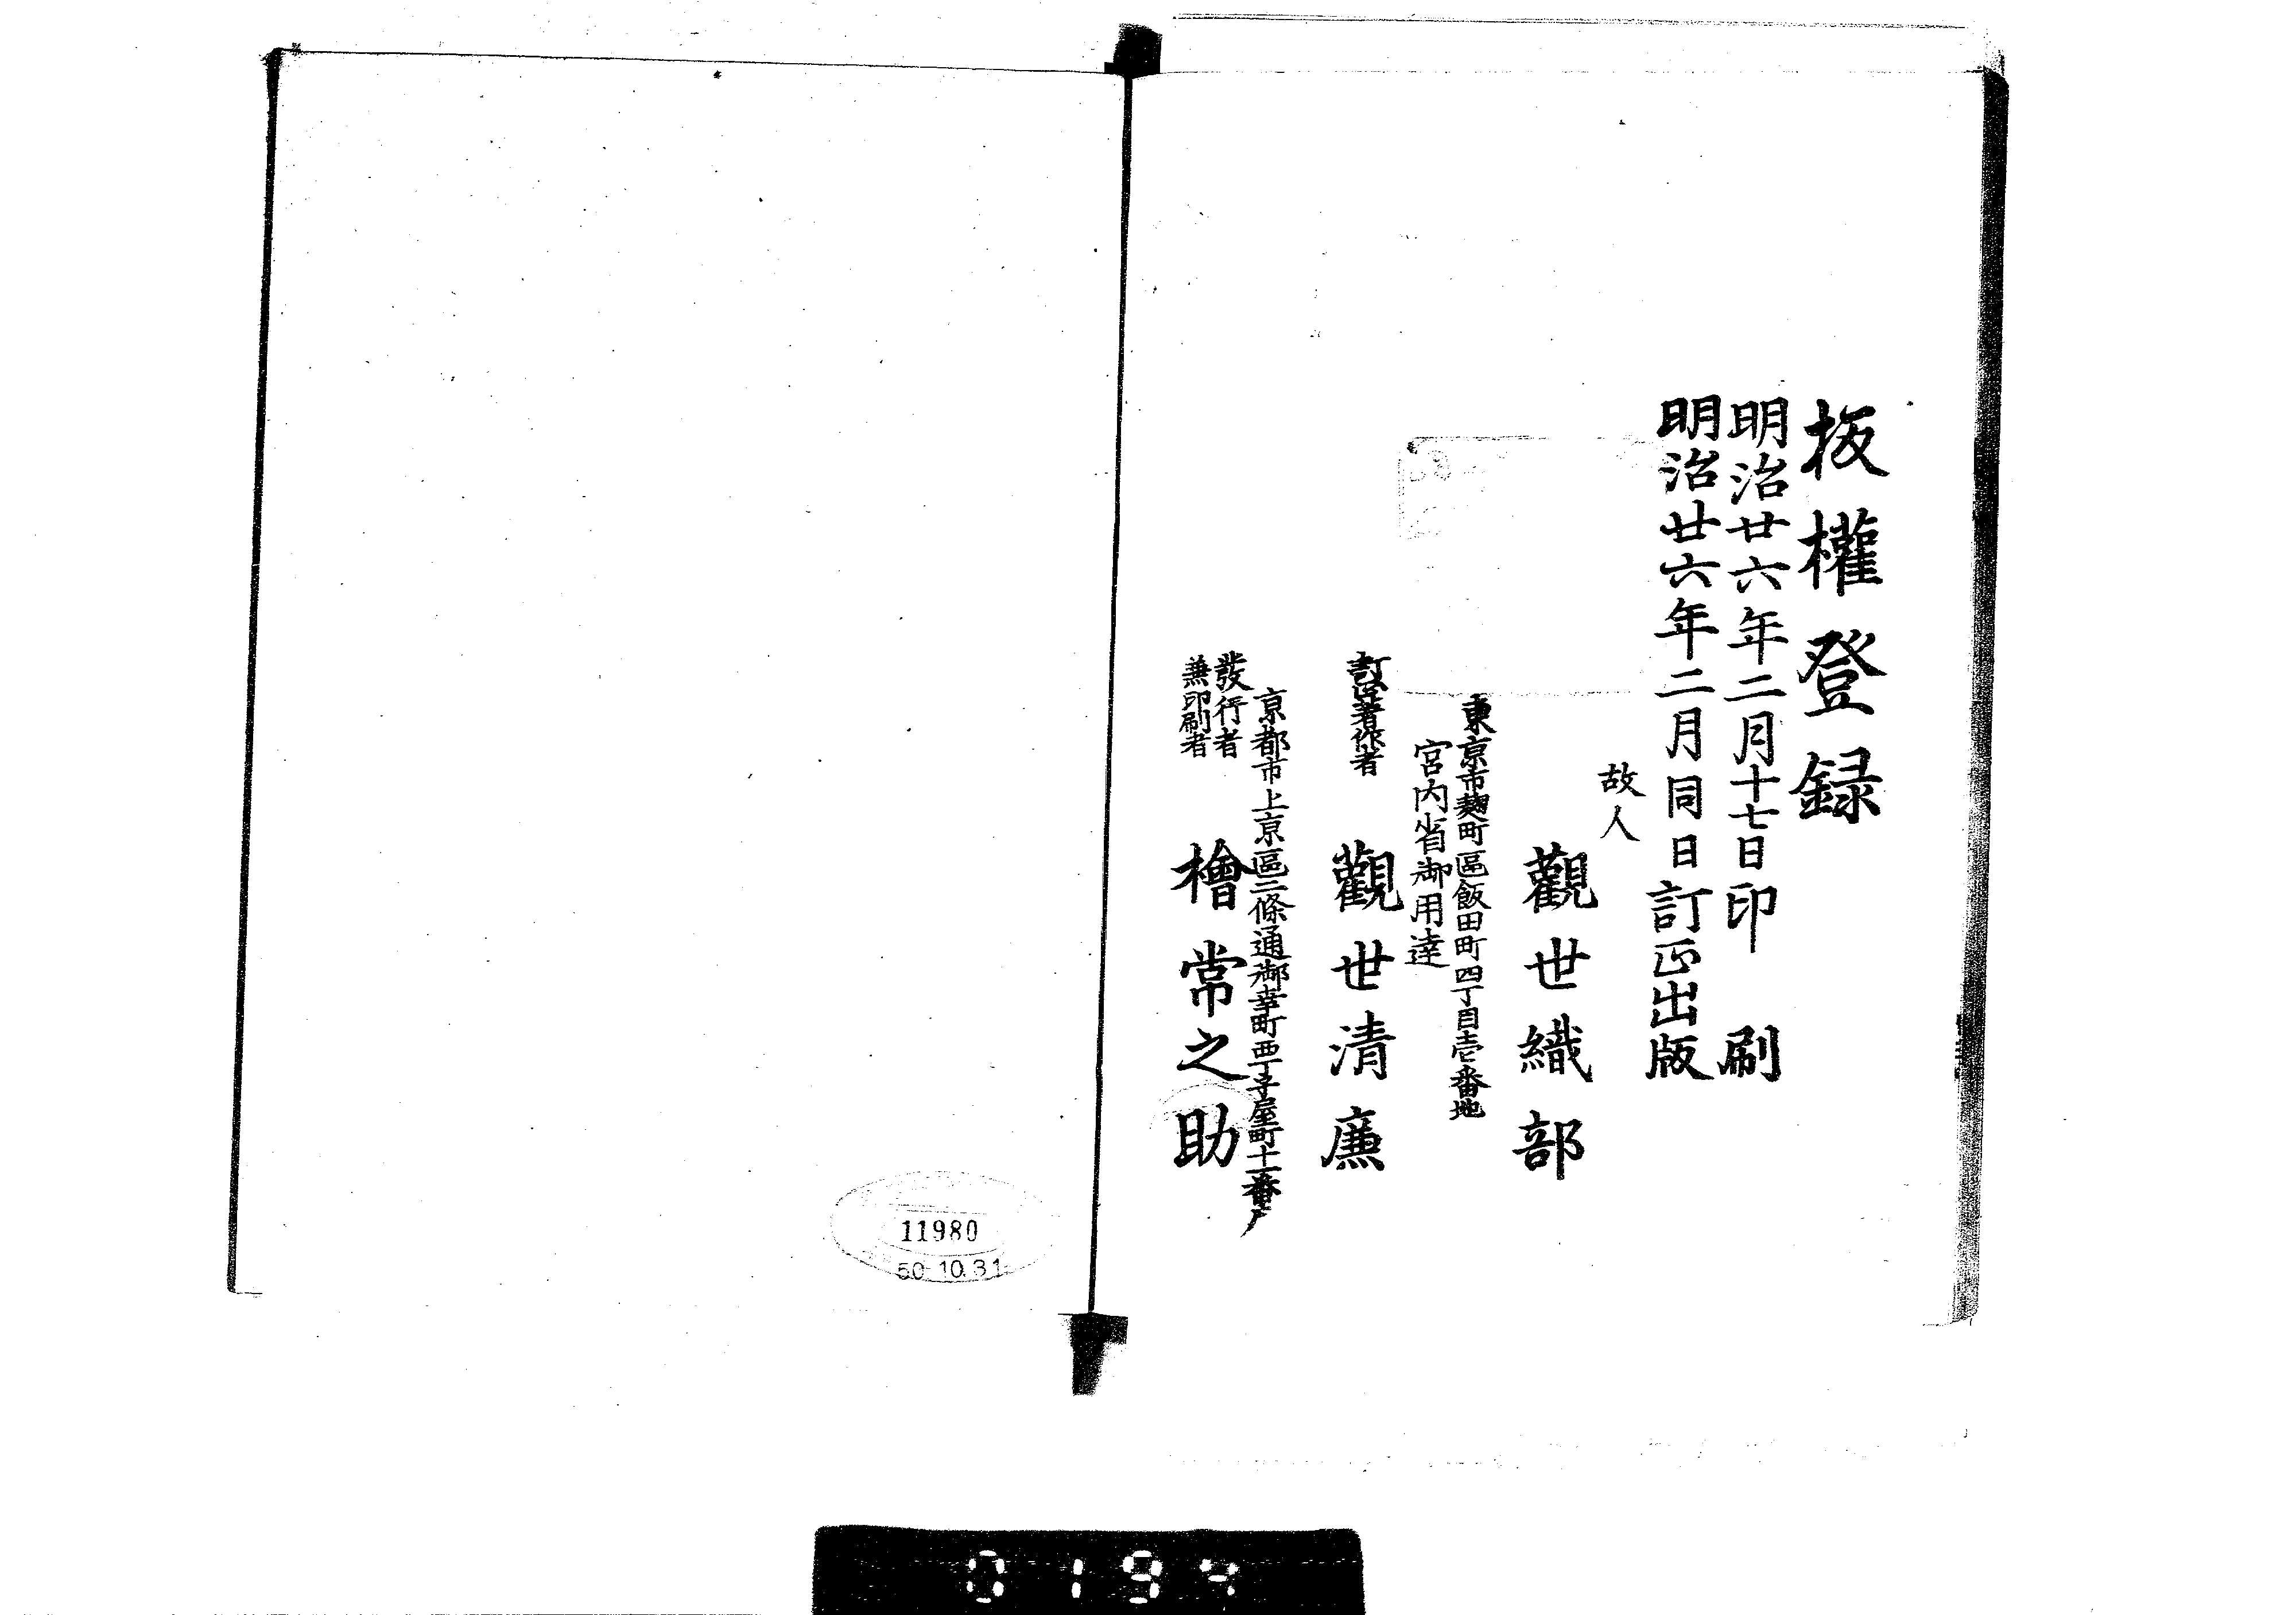 板權登録
明治廿六年二月十七日印刷
明治廿六年二月同日訂正出版
故人
觀世織部
東京市麹町區飯田町四丁目壱番地
宮内省御用達
訂正著作者
觀世清廉
京都市上京區二條通御幸町西丁子屋町十一番戸
發行者
兼印刷者
檜常之助
11980
50.10.31
0194